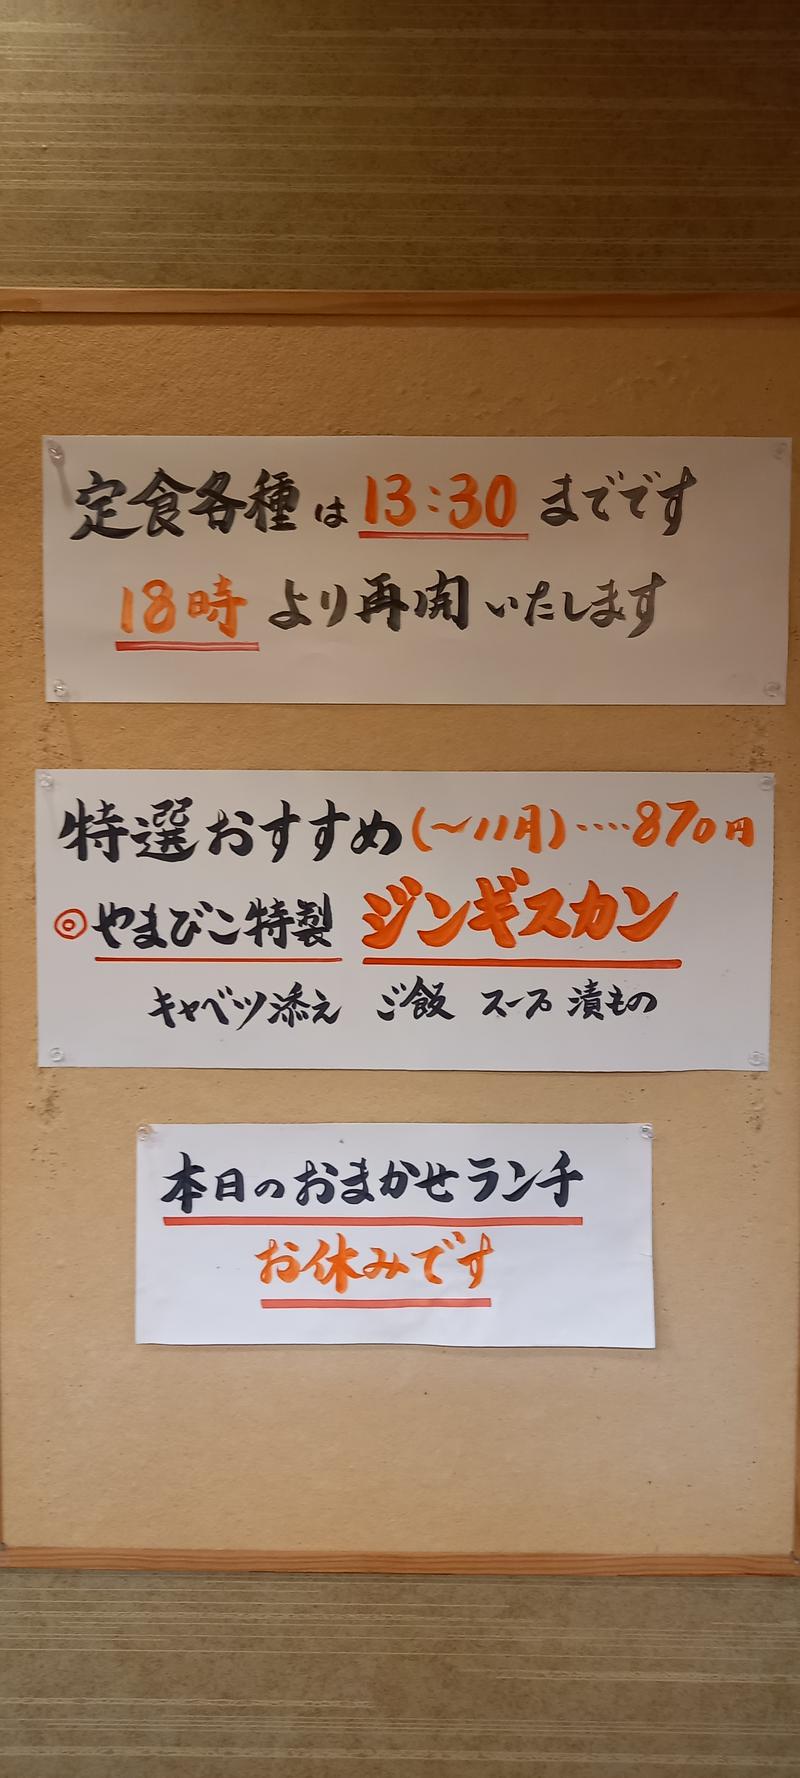 定食各種は13:30までです
18時より再開いたします
特選おすすめ(〜11月)‥‥870円
◎やまびこ特製 ジンギスカン
キャベツ添え ご飯 スープ 漬もの
本日のおまかせランチ
お休みです